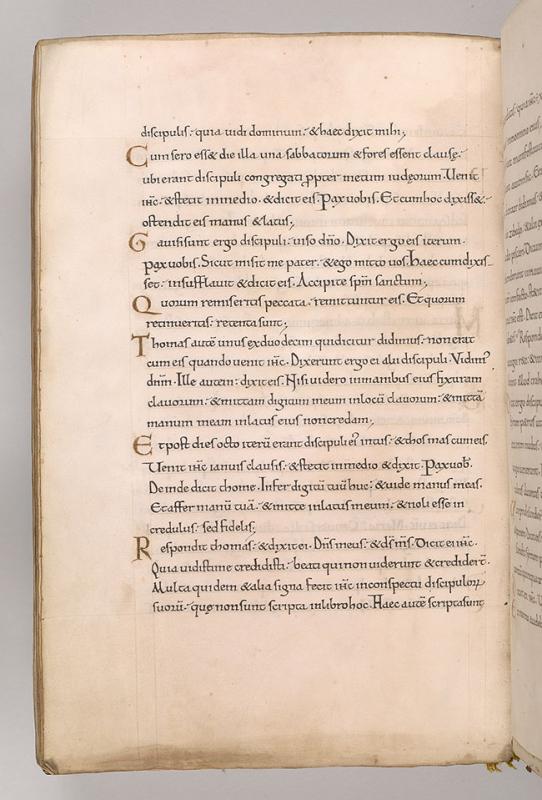 discipulis. quia uidi dominum. & haec dixit mihi;
Cum sero ess& die illa una sabbatorum & fores essent clausę.
ubi erant discipuli congregati ppter metum iudęorum. Uenit
ihc. & stetit in medio. & dicit eis. Pax uobis. Et cum hoc dixiss&.
ostendit eis manus & latus;
Gauisi sunt ergo discipuli. uiso dño. Dixit ergo eis iterum.
pax uobis. Sicut misit me pater. & ego mitto uos. Haec cum dixis
set. insufflauit & dicit eis. Accipite spm sanctum;
Quorum remiseritis peccata. remittuntur eis. Et quorum
retinueritis. retenta sunt;
Thomas autē unus ex duodecim qui dicitur didimus. non erat
cum eis quando uenit ihc. Dixerunt ergo ei alii discipuli. Vidim'
dnm. Ille autem. dixit eis. Nisi uidero in manibus eius fixuram
clauorum. & mittam digitum meum in locū clauorum. & mittā
manum meam in latus eius non credam;
Et post dies octo iterū erant discipuli ei' intus. & thomas cum eis.
Uenit ihc ianuis clausis. & stetit in medio & dixit. Pax uob.
Deinde dicit thome. Infer digitū tuū huc. & uide manus meas.
Et affer manū tuā. & mitte in latus meum. & noli esse in
credulus. sed fidelis;
Respondit thomas. & dixit ei. Dñs meus. & ds ms. Dicit ei ihc.
Quia uidisti me credidisti. beati qui non uiderunt & credidert.
Multa quidem & alia signa fecit ihc in conspectu discipuloꝝ
suorū. quę non sunt scripta in libro hoc. Haec autē scripta sunt